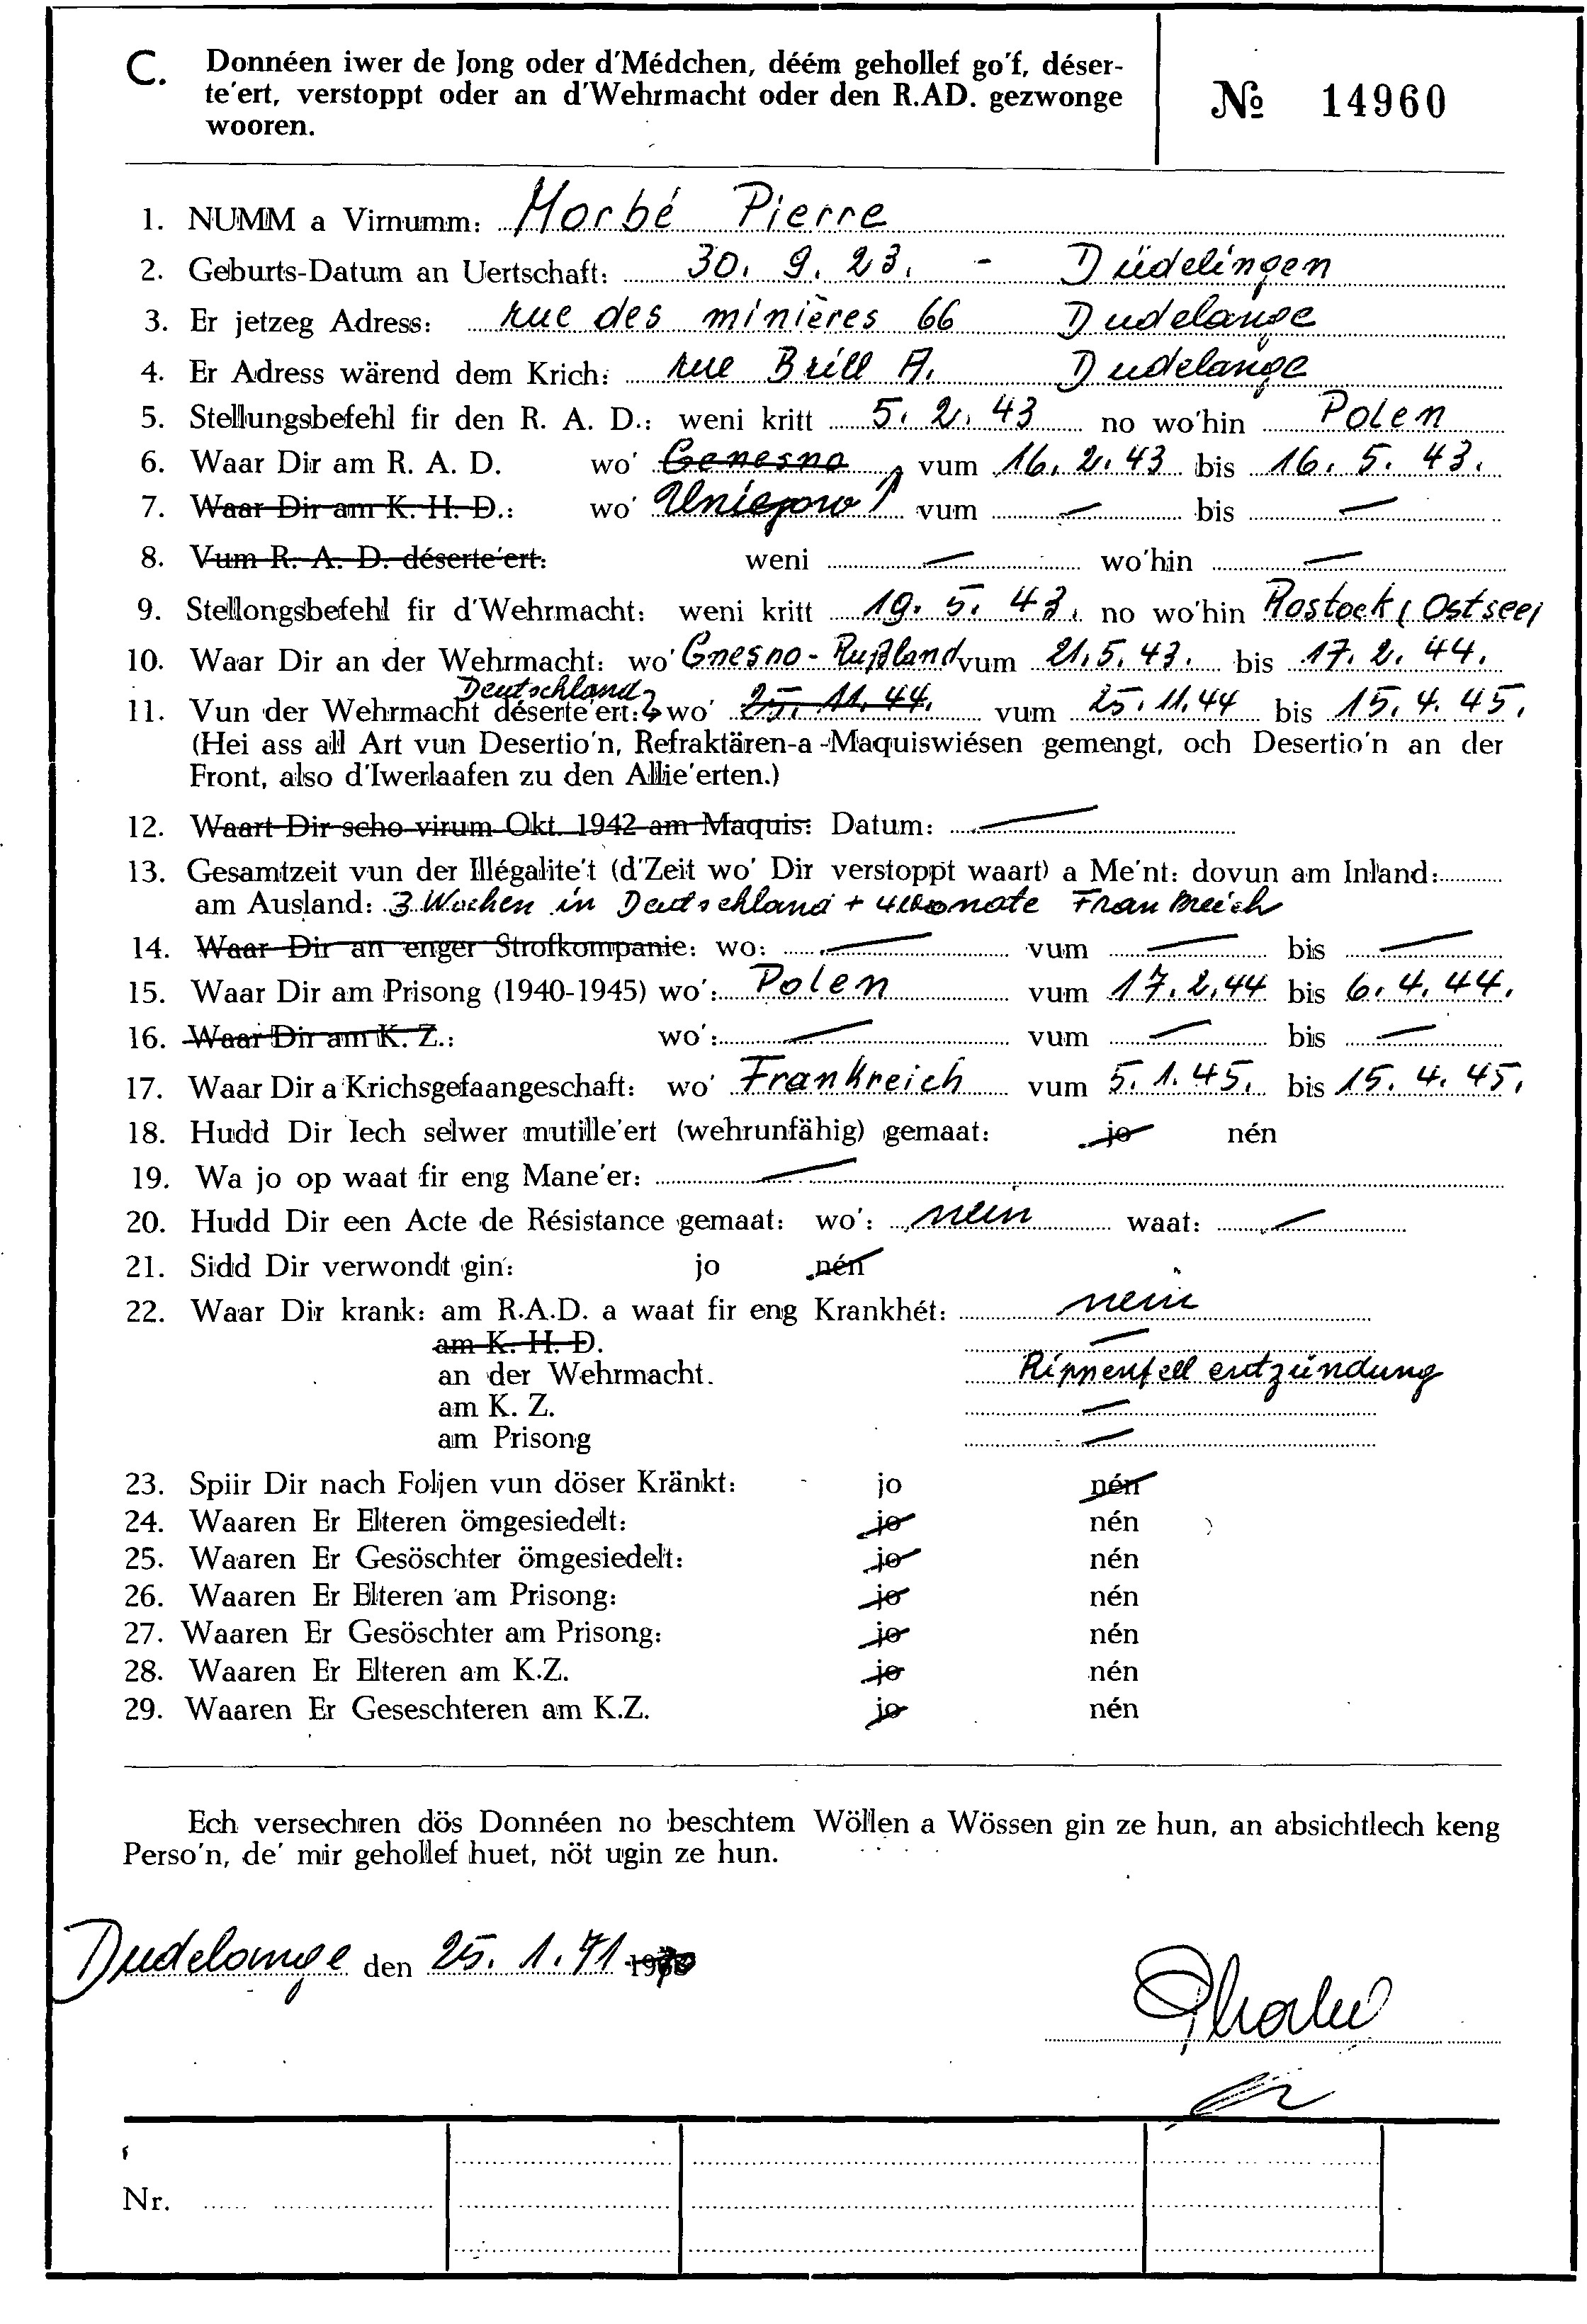 C. Donnéen iwer de Jong oder d'Médchen, déém gehollef go'f, déser-
te'ert, verstoppt oder an d'Wehrmacht oder den R.AD. gezwonge
wooren.
№ 14960
1. NUMM a Virnumm: Morbé Pierre
2. Geburts-Datum an Uertschaft: 30. 9. 23. - Düdelingen
3. Er jetzeg Adress: rue des minières 66 Dudelange
4. Er Adress wärend dem Krich: rue Brill A. Dudelange
5. Stellungsbefehl fir den R. A. D.: weni kritt 5. 2. 43 no wo'hin Polen
6. Waar Dir am R. A. D. wo' Genesno vum 16. 2. 43 bis 16. 5. 43.
7. Waar Dir am K. H. D.: wo' Uniejow vum — bis —
8. Vum R. A. D. déserte'ert: weni — wo'hin —
9. Stellongsbefehl fir d'Wehrmacht: weni kritt 19. 5. 43. no wo'hin Rostock (Ostsee)
10. Waar Dir an der Wehrmacht: wo' Gnesno - Rußland vum 21. 5. 43. bis 17. 2. 44.
Deutschland
11. Vun der Wehrmacht déserte'ert: wo' 25. 11. 44. vum 25. 11. 44 bis 15. 4. 45.
(Hei ass all Art vun Desertio'n, Refraktären-a -Maquiswiésen gemengt, och Desertio'n an der
Front, also d'Iwerlaafen zu den Allie'erten.)
12. Waart Dir scho virum Okt. 1942 am Maquis: Datum: —
13. Gesamtzeit vun der Illégalite't (d'Zeit wo' Dir verstoppt waart) a Me'nt: dovun am Inland:
am Ausland: 3 Wochen in Deutschland + 4 Monate Frankreich
14. Waar Dir an enger Strofkompanie: wo: — vum — bis —
15. Waar Dir am Prisong (1940-1945) wo': Polen vum 17. 2. 44 bis 6. 4. 44.
16. Waar Dir am K. Z.: wo': — vum — bis —
17. Waar Dir a Krichsgefaangeschaft: wo' Frankreich vum 5. 1. 45. bis 15. 4. 45.
18. Hudd Dir Iech selwer mutille'ert (wehrunfähig) gemaat: jo nén
19. Wa jo op waat fir eng Mane'er: —
20. Hudd Dir een Acte de Résistance gemaat: wo': nein waat: —
21. Sidd Dir verwondt gin: jo nén
22. Waar Dir krank: am R.A.D. a waat fir eng Krankhét: nein
am K. H. D. —
an der Wehrmacht. Rippenfell entzündung
am K. Z. —
am Prisong —
23. Spiir Dir nach Foljen vun döser Kränkt: jo nén
24. Waaren Er Elteren ömgesiedelt: jo nén
25. Waaren Er Gesöschter ömgesiedelt: jo nén
26. Waaren Er Elteren am Prisong: jo nén
27. Waaren Er Gesöschter am Prisong: jo nén
28. Waaren Er Elteren am K.Z. jo nén
29. Waaren Er Geseschteren am K.Z. jo nén
Ech versechren dös Donnéen no beschtem Wöllen a Wössen gin ze hun, an absichtlech keng
Perso'n, de' mir gehollef huet, nöt ugin ze hun.
Dudelange den 25. 1. 71
Nr.